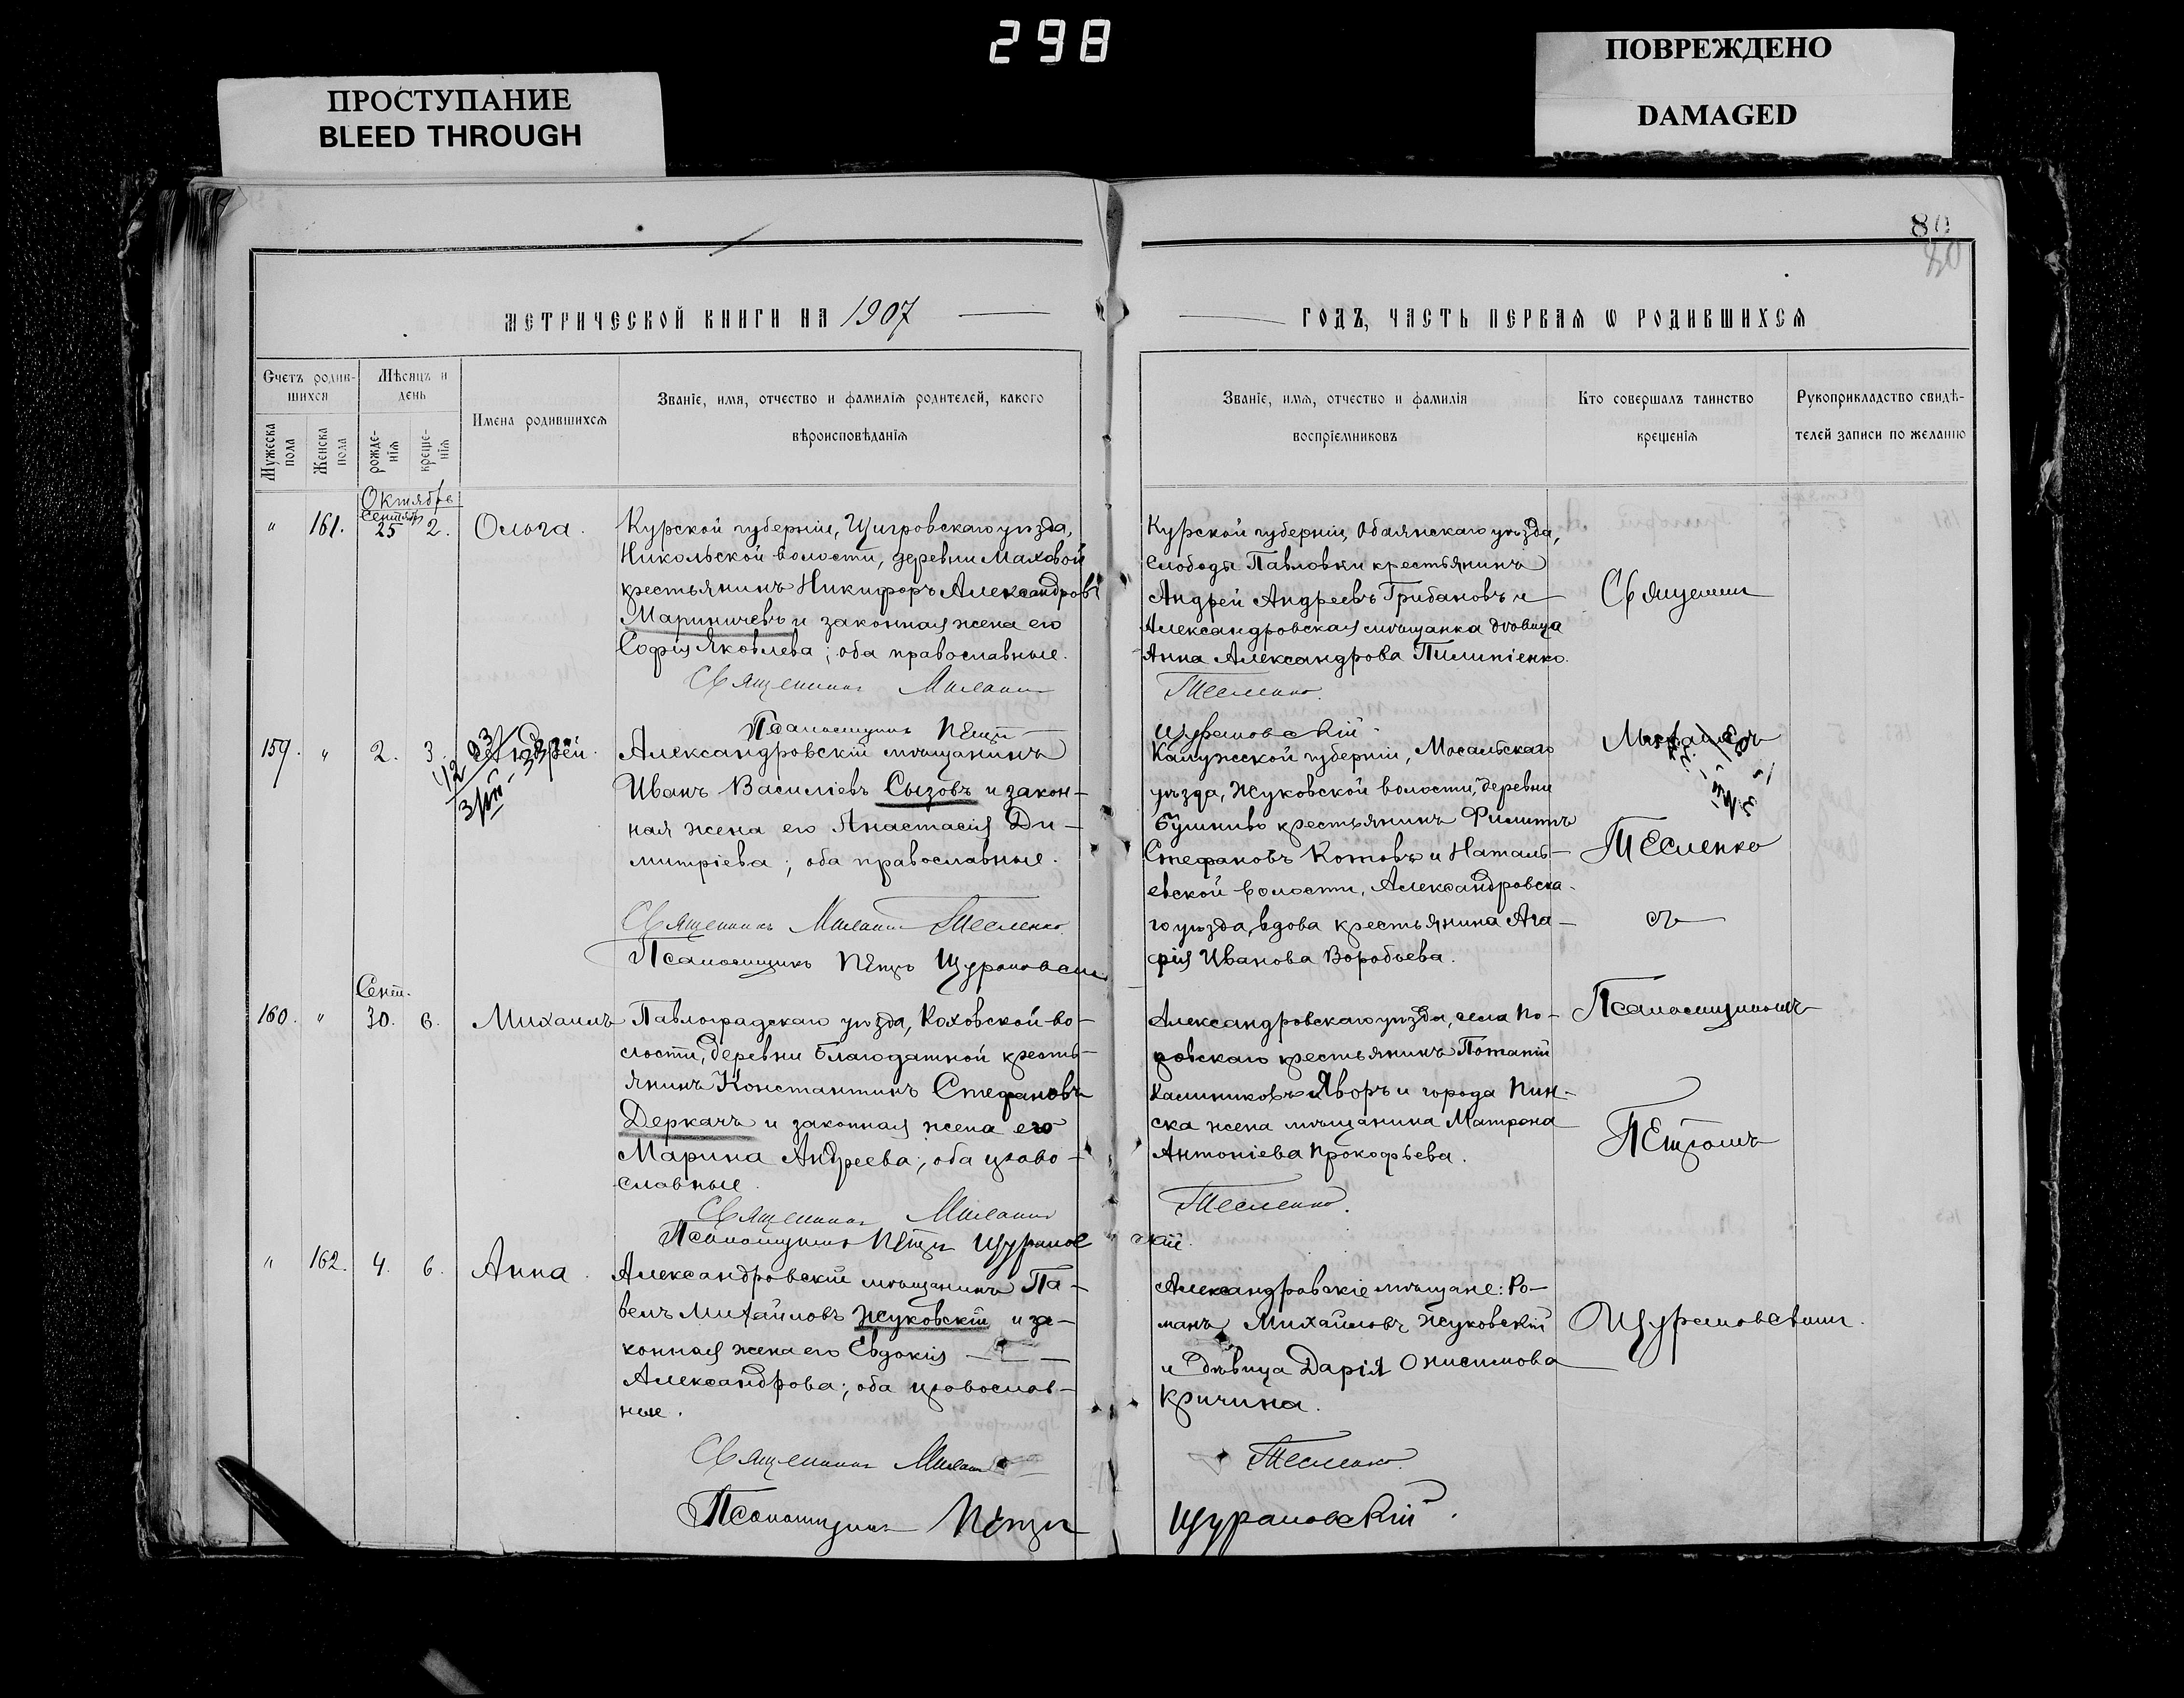 298
ПРОСТУПАНИЕ
BLEED THROUGH
ПОВРЕЖДЕНО
DAMAGED
80
80
МЕТРИЧЕСКОЙ КНИГИ НА 1907
ГОДЪ, ЧАСТЬ ПЕРВАЯ Ѡ РОДИВШИХСЯ
Счетъ родив-
шихся
Мѣсяцъ и
день
Мужеска
пола
Женска
пола
рожде-
нія
креще-
нія
Имена родившихся
Званіе, имя, отчество и фамилія родителей, какого
вѣроисповѣданія
Званіе, имя, отчество и фамилія
воспріемниковъ
Кто совершалъ таинство
крещенія
Рукоприкладство свидѣ-
телей записи по желанію
Октябрь
" 161. 25 2. Ольга.
Курской губерніи, Щигровскаго уѣзда,
Никольской волости, деревни Маховой
крестьянинъ Никифоръ Александровъ
Мариничевъ и законная жена его
Софія Яковлева; оба православные.
Священникъ
Псаломщикъ Петръ
Курской губерніи, Обоянскаго уѣзда,
слободы Павловки крестьянинъ
Андрей Андреевъ Грибановъ и
Александровская мѣщанка дѣвица
Анна Александрова Пилипіенко.
Тесленко.
Щурановскій.
159. " 2. 3. Андрей.
Александровскій мѣщанинъ
Иванъ Василіевъ Сызовъ и закон-
ная жена его Анастасія Ди-
митріева; оба православные.
Священникъ Тесленко.
Псаломщикъ Петръ
Калужской губерніи, Мосальскаго
уѣзда, Жуковской волости, деревни
крестьянинъ Филиппъ
Стефановъ Котовъ и Наталь-
евской волости, Александровска-
го уѣзда, вдова крестьянина Ага-
фія Иванова Воробьева.
Тесленко
съ
Сент.
160. " 30. 6. Михаилъ
Павлоградскаго уѣзда, Коховской во-
лости, деревни Благодатной кресть-
янинъ Константинъ Стефановъ
Деркачъ и законная жена его
Марина Андреева; оба право-
славные.
Священникъ
Псаломщикъ Петръ Щуранов
скій.
Александровскаго уѣзда, села По-
ровскаго крестьянинъ
Калиниковъ Яворъ и города Пин-
ска жена мѣщанина Матрона
Антоніева Прокофьева.
Тесленко.
Псаломщикомъ
Петромъ
" 162. 4. 6. Анна.
Александровскій мѣщанинъ Па-
велъ Михайловъ Жуковскій и за-
конная жена его Евдокія
Александрова; оба православ-
ные.
Священникъ
Псаломщикъ Петръ
Александровскіе мѣщане: Ро-
манъ Михайловъ Жуковскій
и дѣвица Дарія Онисимова
Кричина.
Тесленко.
Щурановскій.
Щурановскимъ.